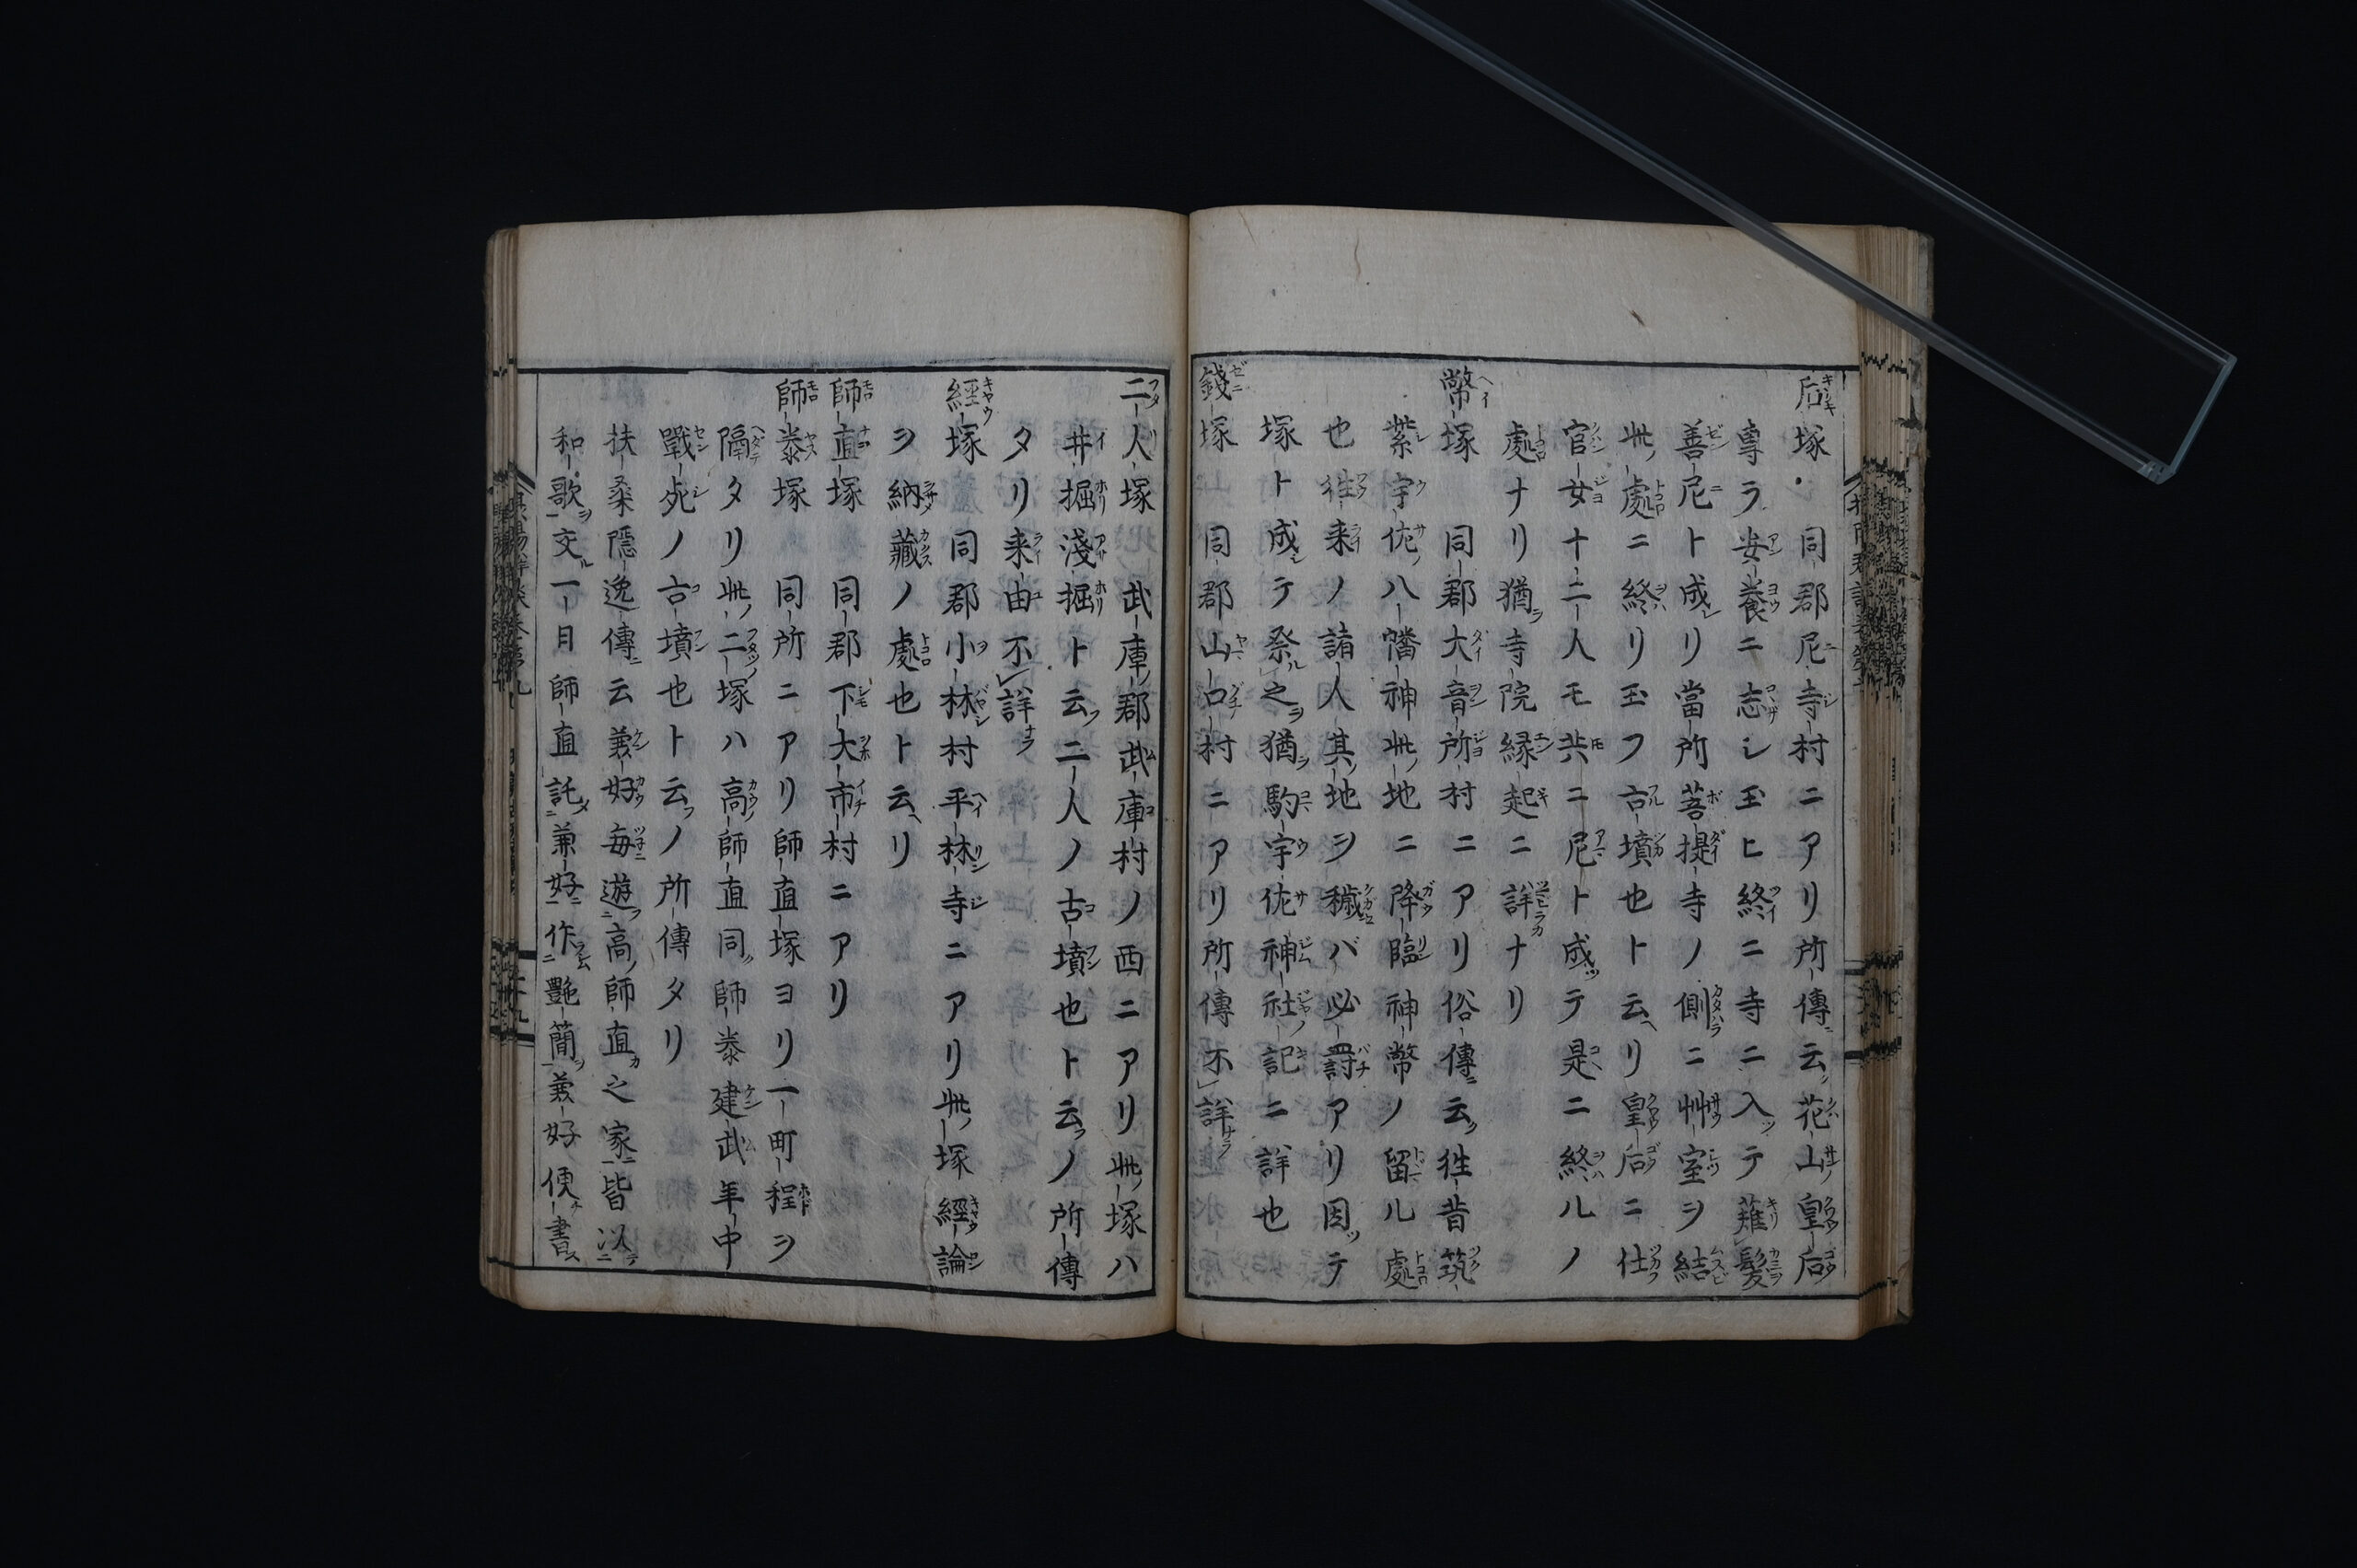 后塚 同郡尼寺村ニアリ所傳云花山皇后
專ラ安養ニ志シ玉ヒ終ニ寺ニ入テ薙髮
善尼ト成リ當所菩提寺ノ側ニ艸室ヲ結
此處ニ終リ玉フ古墳也ト云リ皇后ニ仕
官女十二人モ共ニ尼ト成テ是ニ終ルノ
處ナリ猶寺院縁起ニ詳ナリ
幣塚 同郡大音所村ニアリ俗傳云徃昔筑
紫宇佐八幡神此地ニ降臨神幣ノ留ル處
也徃来ノ諸人其地ヲ穢バ必罸アリ因テ
塚ト成テ祭之猶駒宇佐神社記ニ詳也
錢塚 同郡山口村ニアリ所傳不詳
二人塚 武庫郡武庫村ノ西ニアリ此塚ハ
井掘淺掘ト云二人ノ古墳也ト云ノ所傳
タリ来由不詳
經塚 同郡小林村平林寺ニアリ此塚經論
ヲ納藏ノ處也ト云リ
師直塚 同郡下大市村ニアリ
師泰塚 同所ニアリ師直塚ヨリ一町程ヲ
隔タリ此二塚ハ高師直同師泰建武年中
戰死ノ古墳也ト云ノ所傳タリ
扶桑隱逸傳云兼好毎遊高師直之家皆以
和歌交一日師直託兼好作艶簡兼好便書